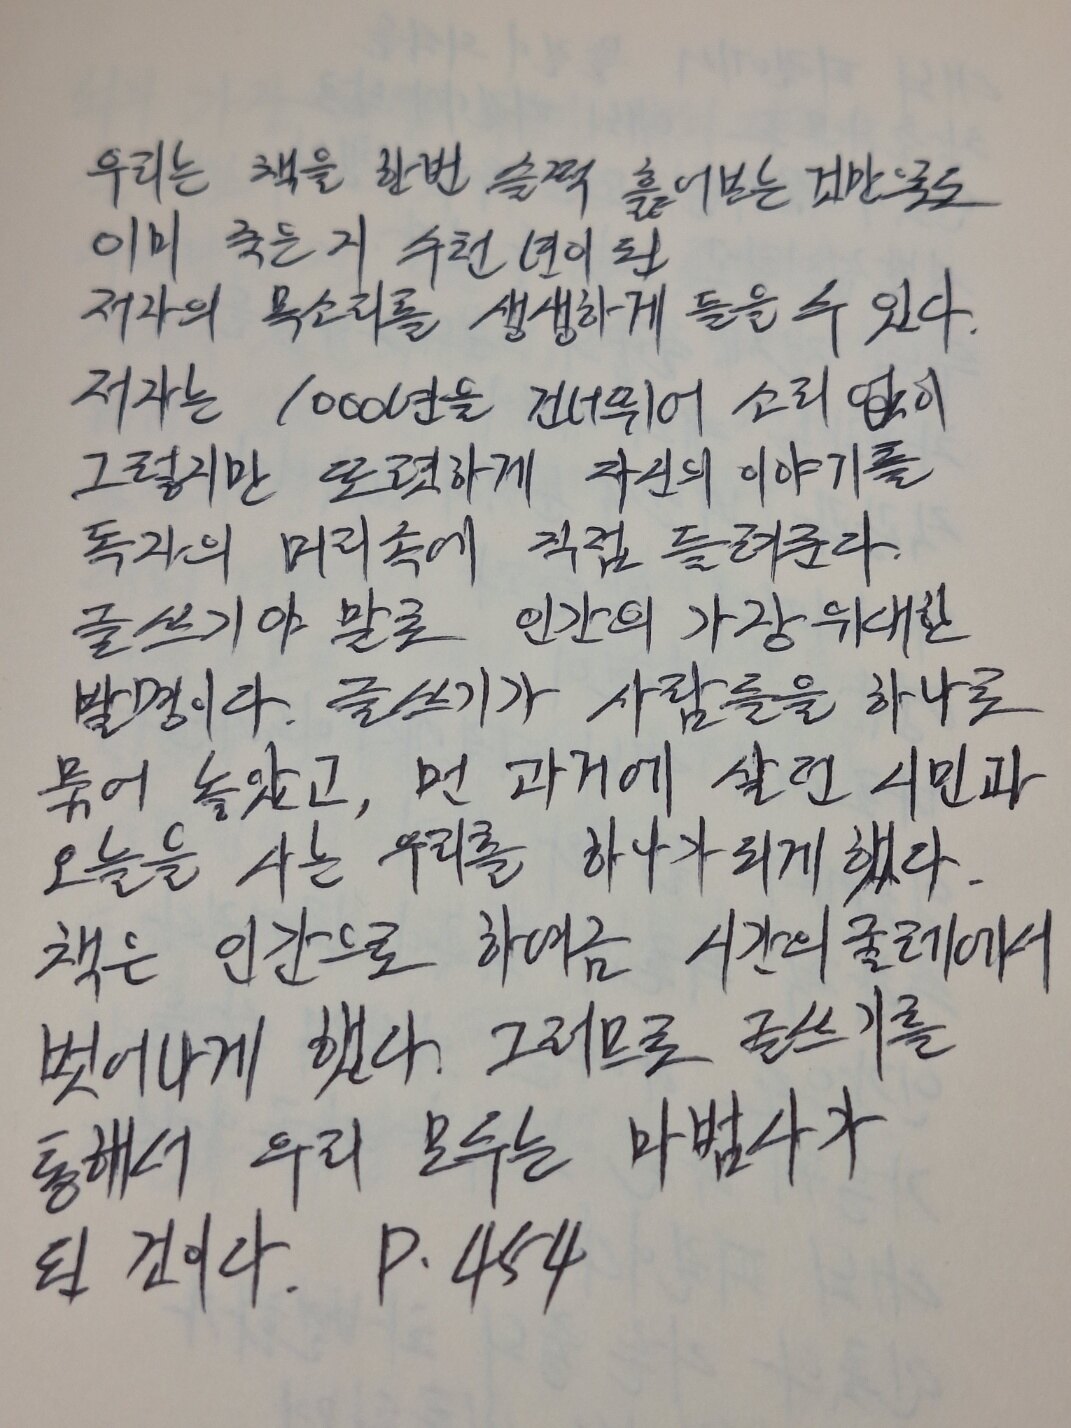 우리는 책을 한번 슬쩍 흝어보는 것만으로도
이미 죽은지 수천 년이 된
저자의 목소리를 생생하게 들을 수 있다.
저자는 1000년을 건너뛰어 소리 없이
그렇지만 또렷하게 자신의 이야기를
독자의 머리속에 직접 들려준다.
글쓰기야 말로 인간의 가장 위대한
발명이다. 글쓰기가 사람들을 하나로
묶어 놓았고, 먼 과거에 살던 시민과
오늘을 사는 우리를 하나가 되게 했다.
책은 인간으로 하여금 시간의 굴레에서
벗어나게 했다. 그러므로 글쓰기를
통해서 우리 모두는 마법사가
된 것이다. P. 454